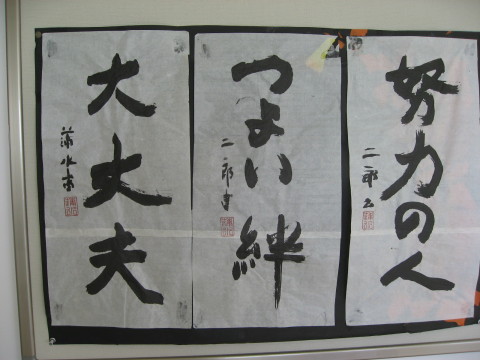 努力の人
二郎
つよい絆
二郎書
大丈夫